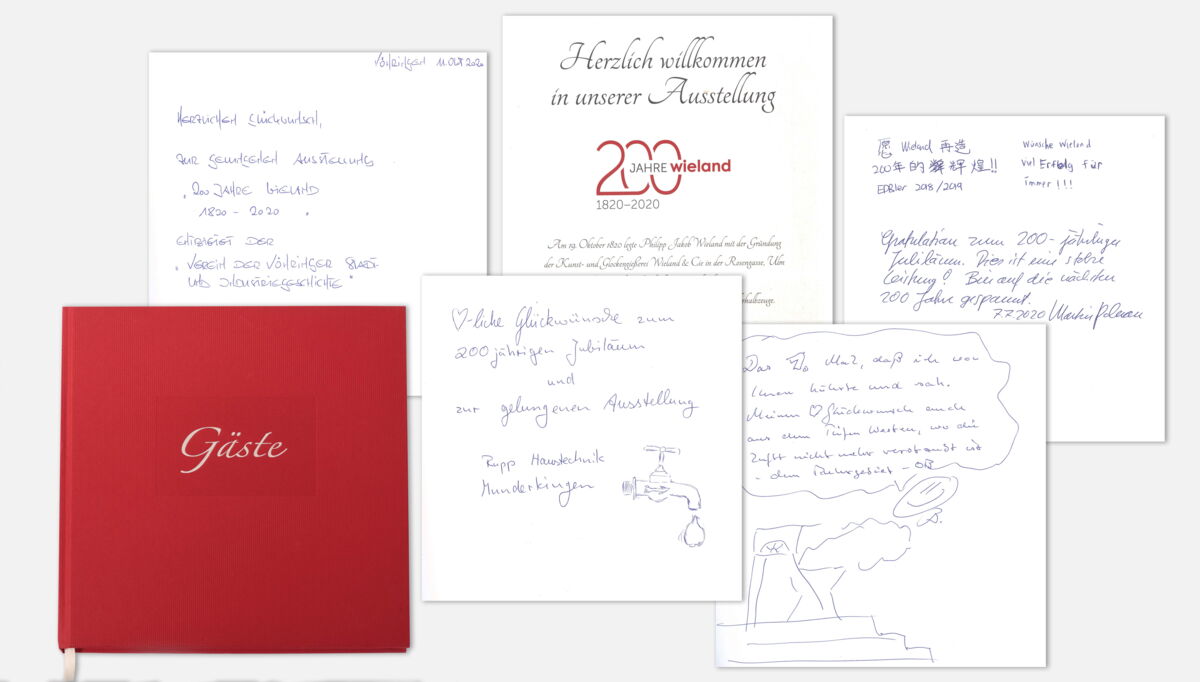 Vöhringen 11. Okt 2020
Herzlichen Glückwunsch,
zur gelungenen Ausstellung
"200 Jahre Wieland
1820 - 2020 "
der
"Verein der Vöhringer Stadt
und Industriegeschichte"
Herzlich willkommen
in unserer Ausstellung
200 JAHRE wieland
1820–2020
Am 19. Oktober 1820 legte Philipp Jakob Wieland mit der Gründung
der Kunst- und Glockengießerei Wieland & Cie in der Rosengasse, Ulm
愿 Wieland 再造
200年的辉煌!!
EDBler 2018/2019
Wünsche Wieland
viel Erfolg für
immer!!!
Gratulation zum 200-jährigen
Jubiläum. Dies ist eine stolze
Leistung! Bin auf die nächsten
200 Jahre gespannt.
7.7.2020 Martin
Gäste
♡-liche Glückwünsche zum
200 jährigen Jubiläum
und
zur gelungenen Ausstellung
Rupp Haustechnik
Munderkingen
Das Mal, daß ich von
Ihnen hörte und sah.
Meinen ♡ Glückwunsch auch
aus dem Tiefen Westen, wo die
Luft nicht mehr verstaubt ist
- dem Ruhrgebiet - OB